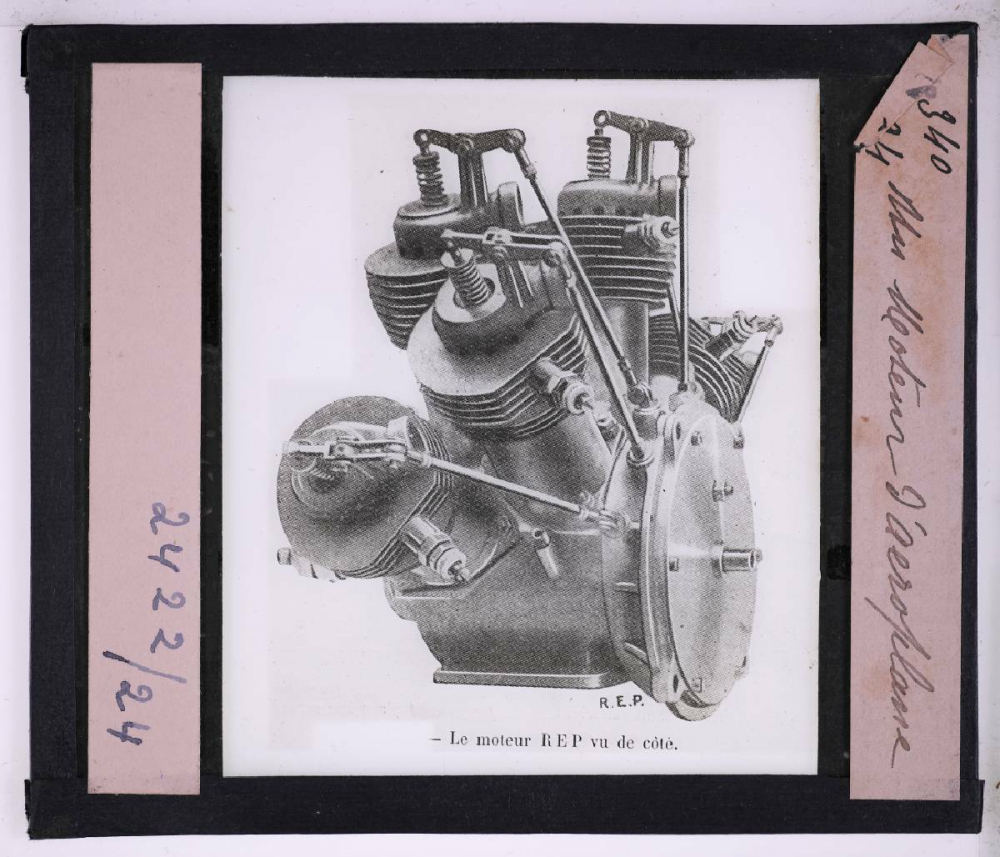 2422/24
R.E.P.
– Le moteur REP vu de côté.
340
24 Un Moteur d'aéroplane